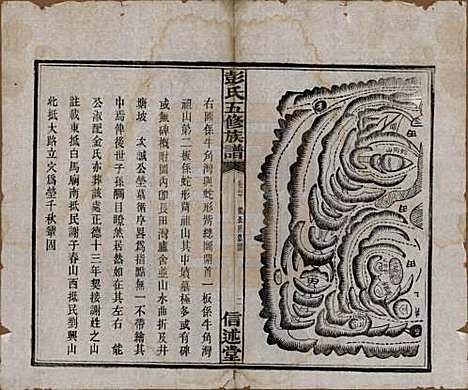 彭氏五修族譜
信述堂
右圖係牛角灣與蛇形塔總圖開首一板係牛角灣
祖山第二板係蛇形竇祖山其中墳墓極多或有碑
或無碑概附圖內即長田灣廬舍並山水曲折及井
塘坡 次誠公塋墓循序畧為指點無一不帶繪其
中焉俾後世子孫矚目瞭然居然如在其左右 能
公淑配金氏亦葬該處正德十三年契接謝姓之山
註載東抵白馬廟南抵民謝子春山西抵民劉興山
北抵大路立穴為塋千秋鞏固